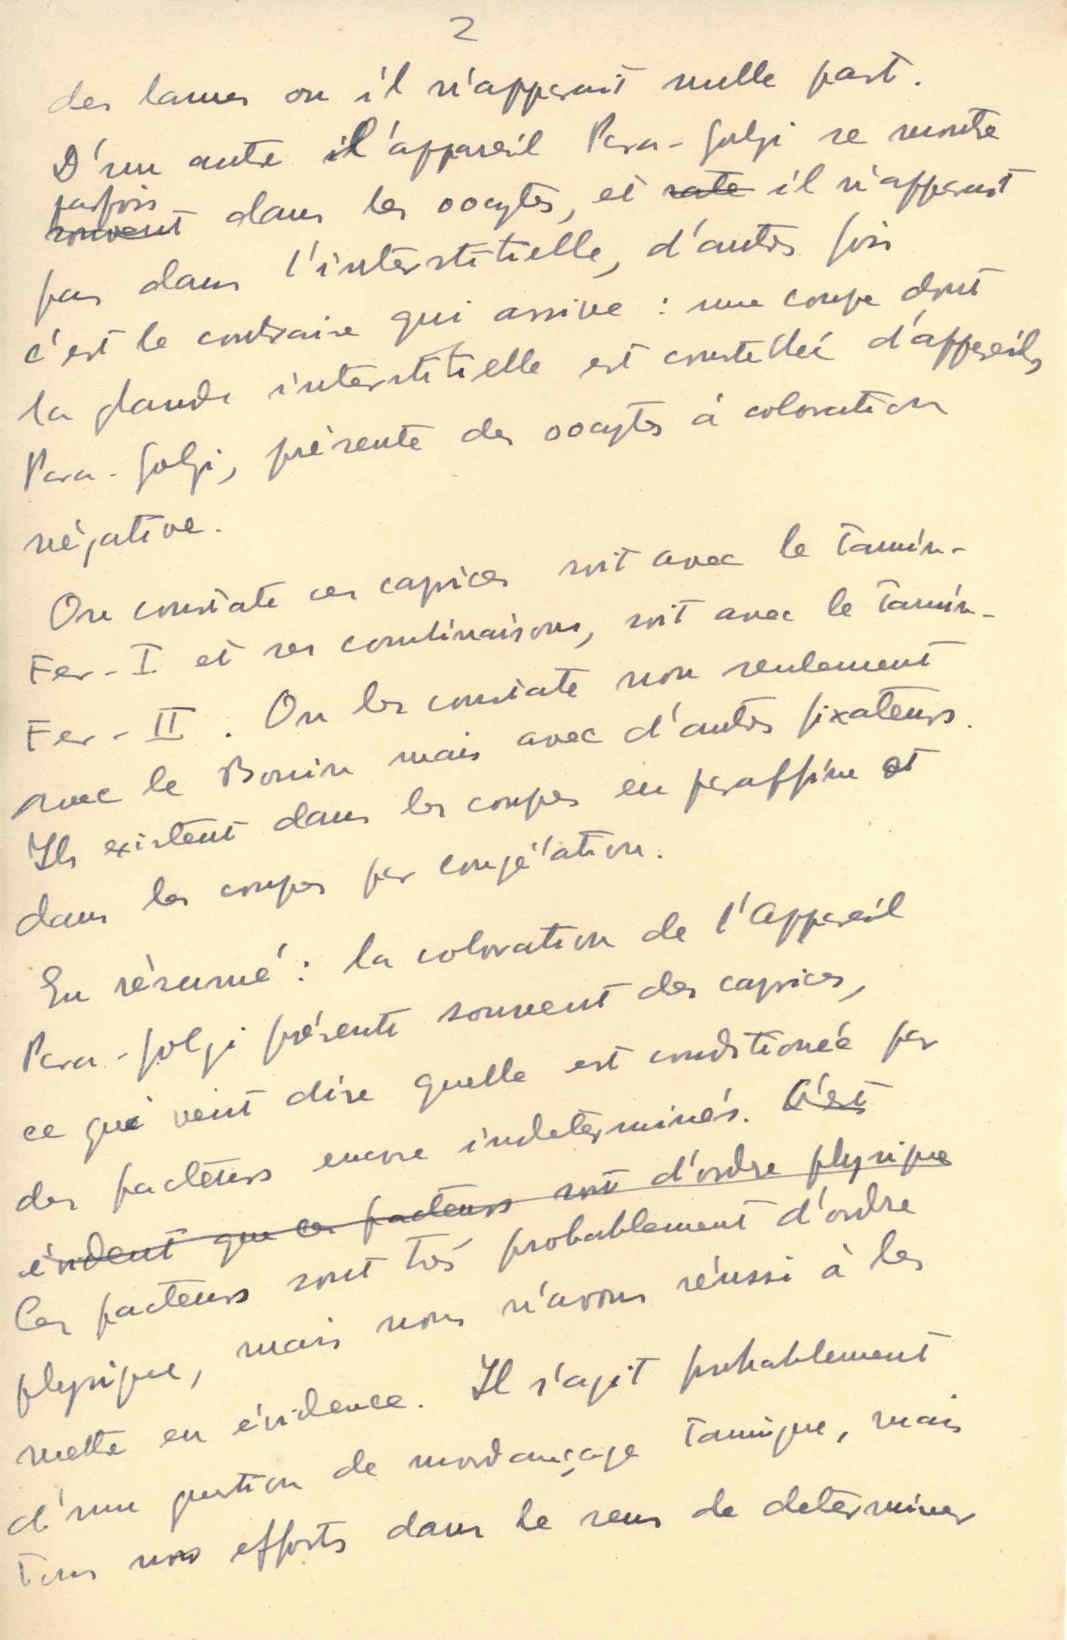 2
des lames ou il n'apparait nulle part.
D'un autre il l'appareil Para-Golgi se montre
parfois
souvent dans les oocytes, et rate il n'apparait
pas dans l'interstitielle, d'autres fois
c'est le contraire qui arrive : une coupe dont
la glande interstitielle est constellée d'appareils
Para-Golgi, présente des oocytes à coloration
négative.
On constate ces caprices soit avec le Tannin-
Fer-I et ses combinaisons, soit avec le Tannin-
Fer-II. On les constate non seulement
avec le Bouin mais avec d'autres fixateurs.
Ils existent dans les coupes en paraffine et
dans les coupes par congélation.
En résumé : la coloration de l'Appareil
Para-Golgi présente souvent des caprices,
ce qui veut dire quelle est conditionée par
des facteurs encore indeterminés. C'est
évident que ces facteurs sont d'ordre physique
Ces facteurs sont très probablement d'ordre
physique, mais nous n'avons réussi à les
mettre en évidence. Il s'agit probablement
d'une question de mordançage tannique, mais
tous nos efforts dans le sens de determiner